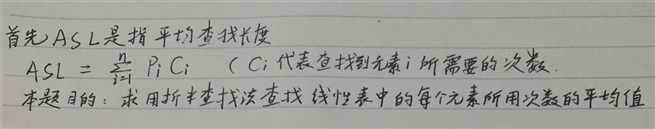 首先ASL是指平均查找长度
ASL = n∑i=1 PiCi （Ci代表查找到元素i所需要的次数.
本题目的：求用折半查找法查找线性表中的每个元素所用次数的平均值